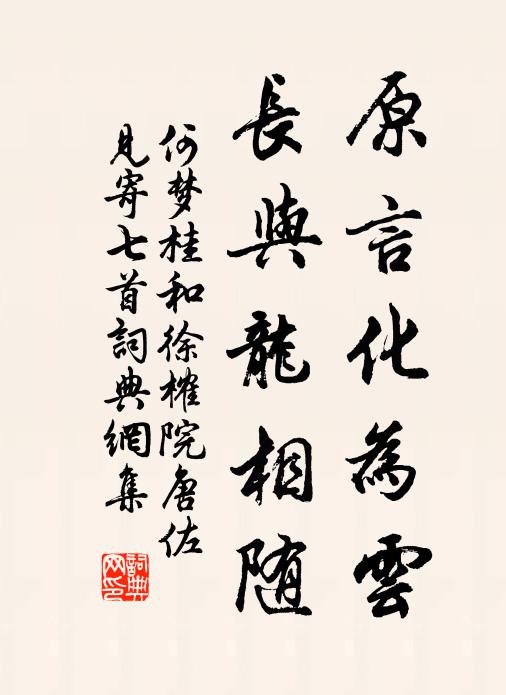 原言化為雲
長與龍相隨
何梦桂和徐榷院唐佐
見寄七首詞典網集
詞典
网印